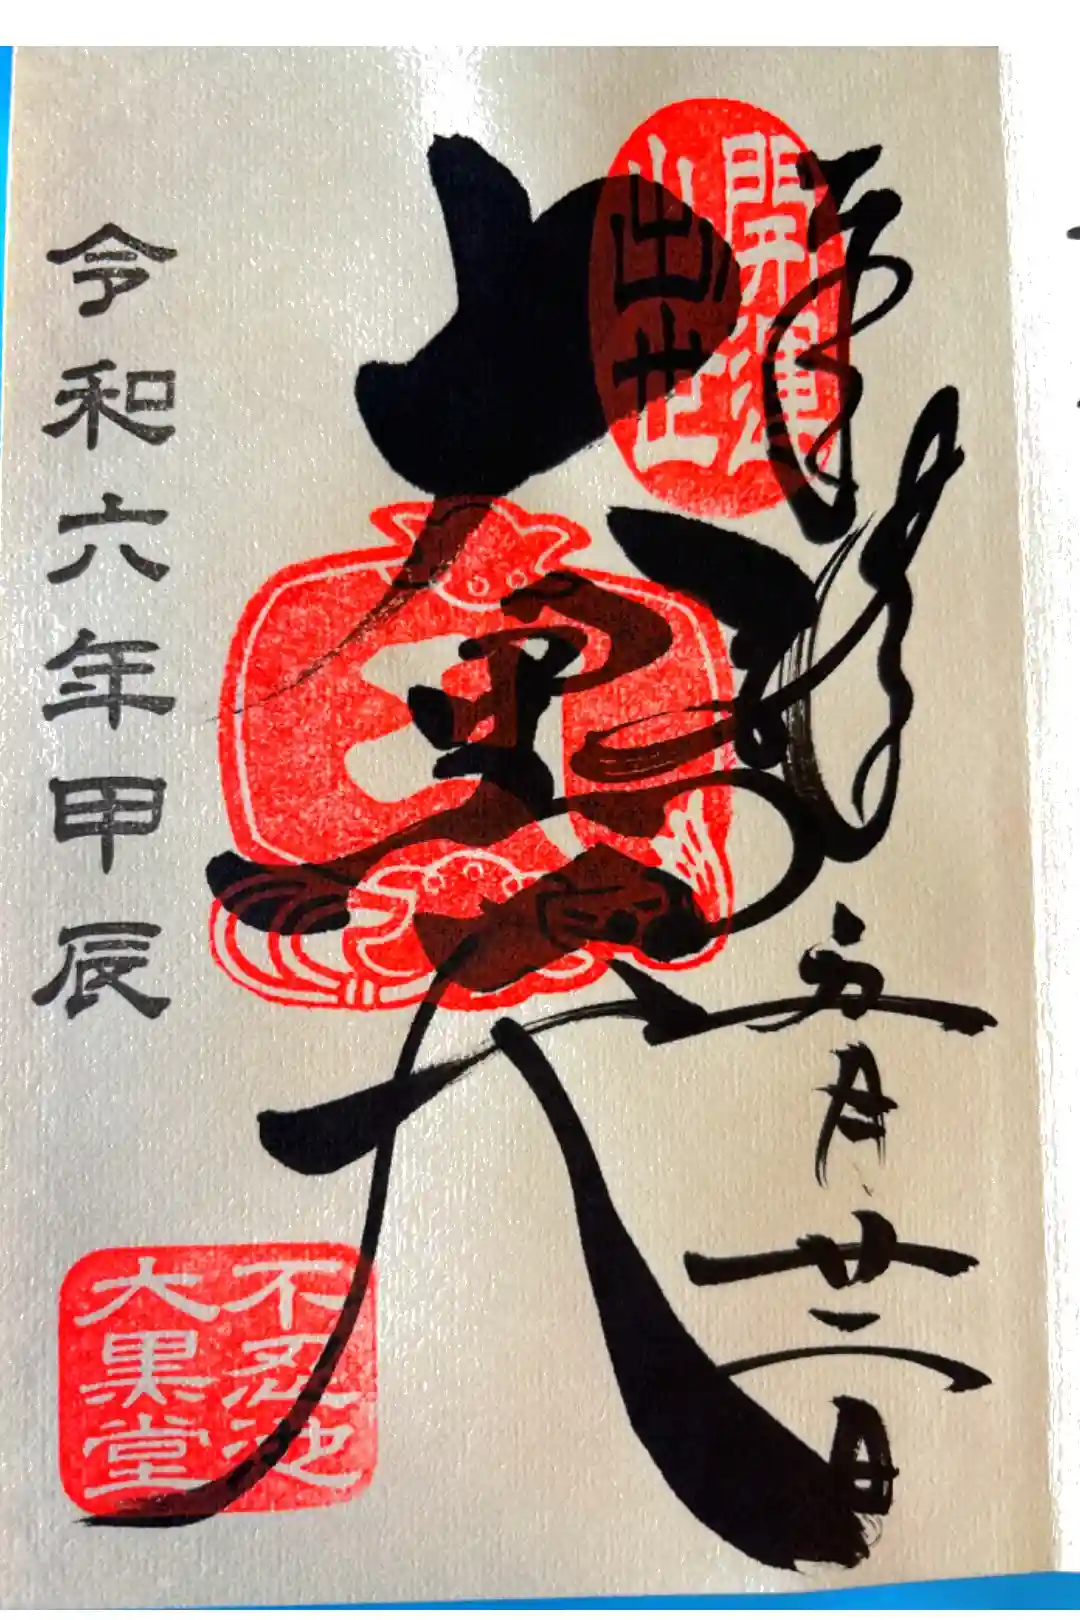 奉拝
五月廿二日
開運
出世
大黒天
令和六年甲辰
不忍池
大黒堂